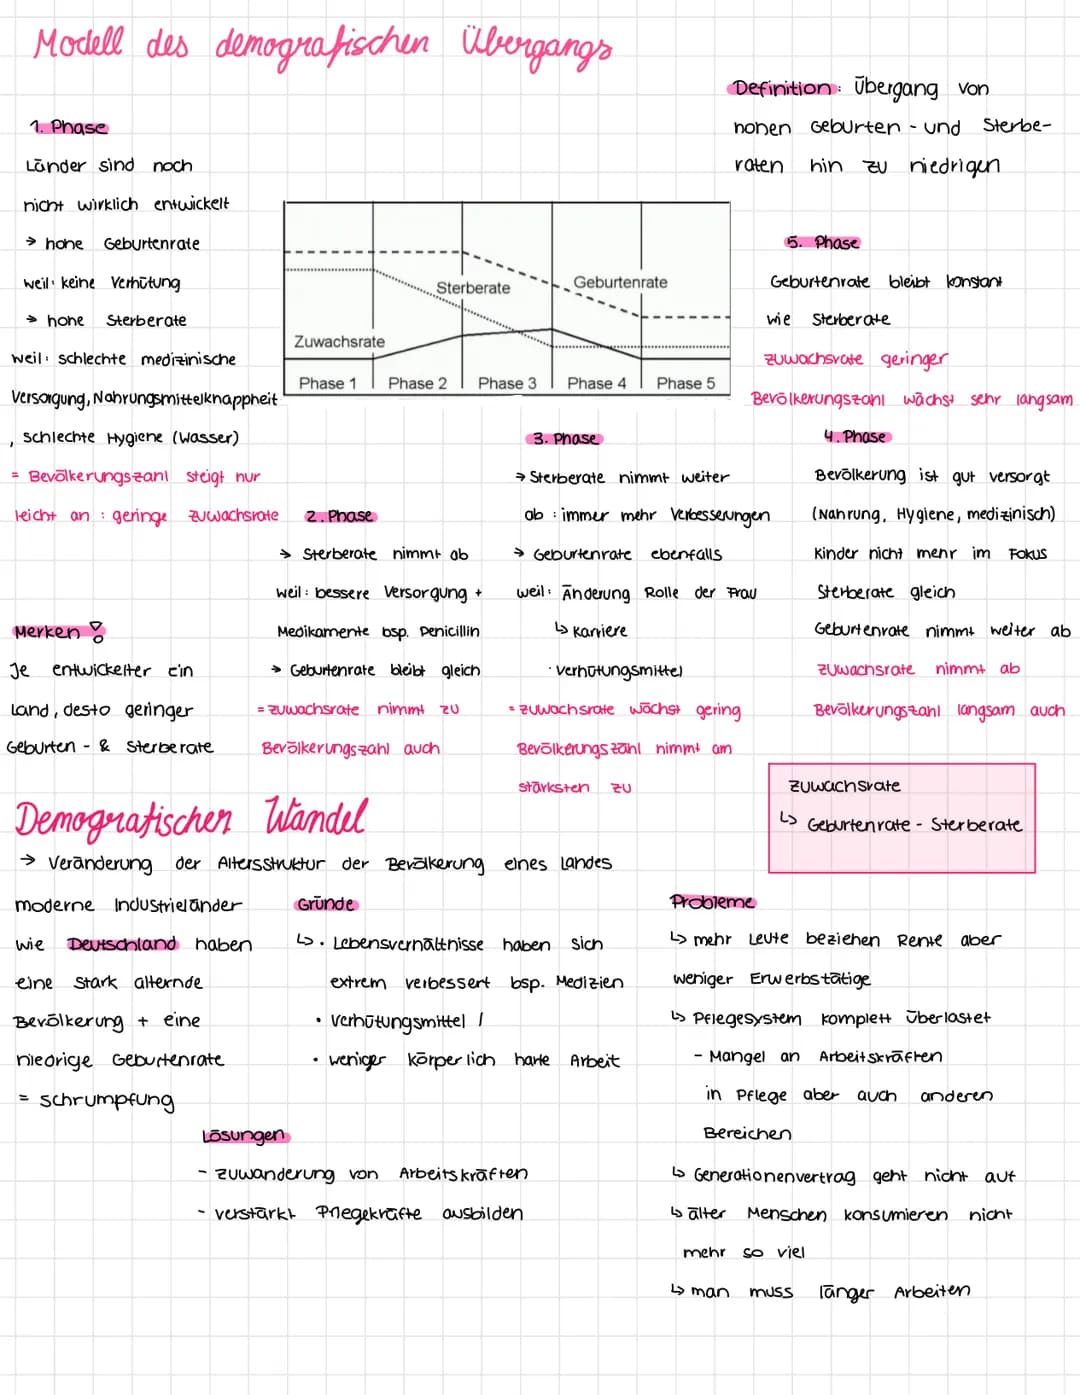 Modell des demografischen Übergangs
Definition: Übergang von
hohen Geburten - und Sterbe-
raten hin zu niedrigen
1. Phase
Länder sind noch
nicht wirklich entwickelt
→ hohe Geburtenrate
weil: keine Verhütung
→ hohe Sterberate
weil: schlechte medizinische
Versorgung, Nahrungsmittelknappheit
, schlechte Hygiene (Wasser)
= Bevölkerungszahl steigt nur
leicht an : geringe Zuwachsrate
Sterberate
Geburtenrate
Zuwachsrate
Phase 1
Phase 2
Phase 3
Phase 4
Phase 5
5. Phase
Geburtenrate bleibt konstant
wie Sterberate
Zuwachsrate geringer
Bevölkerungszahl wächst sehr langsam
2. Phase
→ Sterberate nimmt ab
weil: bessere Versorgung +
Medikamente bsp. Penicillin
→ Geburtenrate bleibt gleich
= Zuwachsrate nimmt zu
Bevölkerungszahl auch
3. Phase
→ Sterberate nimmt weiter
ab : immer mehr Verbesserungen
→ Geburtenrate ebenfalls
weil: Änderung Rolle der Frau
↳ Karriere
· Verhütungsmittel
= Zuwachsrate wächst gering
Bevölkerungszahl nimmt am
stärksten zu
4. Phase
Bevölkerung ist gut versorgt
(Nahrung, Hygiene, medizinisch)
Kinder nicht mehr im Fokus
Sterberate gleich
Geburtenrate nimmt weiter ab
Zuwachsrate nimmt ab
Bevölkerungszahl langsam auch
Merken !
Je entwickelter ein
Land, desto geringer
Geburten - & Sterberate
Zuwachsrate
↳ Geburtenrate - Sterberate
Demografischer Wandel
→ Veränderung der Altersstruktur der Bevölkerung eines Landes
moderne Industrieländer
wie Deutschland haben
eine stark alternde
Bevölkerung + eine
niedrige Geburtenrate
= schrumpfung
Gründe
↳ · Lebensverhältnisse haben sich
extrem verbessert bsp. Medizien
• Verhütungsmittel /
• weniger körperlich harte Arbeit
Lösungen
- Zuwanderung von Arbeitskräften
- verstärkt Pflegekräfte ausbilden
Probleme
↳ mehr Leute beziehen Rente aber
weniger Erwerbstätige
↳ Pflegesystem komplett überlastet
- Mangel an Arbeitskräften
in Pflege aber auch anderen
Bereichen
↳ Generationenvertrag geht nicht auf
↳ älter Menschen konsumieren nicht
mehr so viel
↳ man muss länger Arbeiten